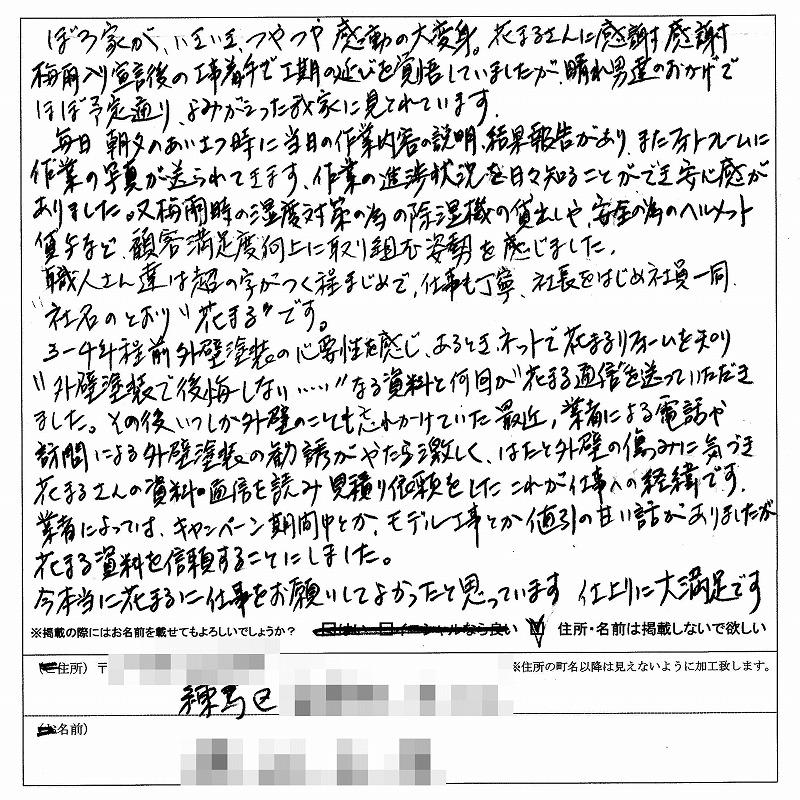 ぼろ家が、いきいき、つやつや 感動の大変身。花まるさんに感謝す感謝す
梅雨入り宣言後の工事着手で工期の延びを覚悟していましたが、晴れ男達のおかげで
ほぼ予定通り、よみがえった我家に見とれています。
毎日 朝夕のあいさつ時に当日の作業内容の説明、結果報告があり、またフォトフレームに
作業の写真が送られてきます、作業の進渉状況を日々知ることができ安心感が
ありました。又梅雨時の湿度対策の為の除湿機の貸出しや、安全の為のヘルメット
貸与など、顧客満足度向上に取り組む姿勢を感じました。
職人さん達は超の字がつく程まじめで、仕事も丁寧、社長をはじめ社員一同、
"社名のとおり"花まる"です。
3-4年程前外壁塗装の必要性を感じ、あるとき、ネットで花まるリフォームを知り
"外壁塗装で後悔しない……"なる資料と何回か"花まる通信"を送っていただき
ました。その後いつしか外壁のことも忘れかけていた最近、業者による電話や
訪問による外壁塗装の勧誘がやたら激しく、はたと外壁の傷みに気づき
花まるさんの資料・通信を読み 見積り依頼をした これが仕事への経緯です。
業者によっては、キャンペーン期間中とか、モデル工事とか値引の甘い話がありましたが
花まる資料を信頼することにしました。
今本当に花まるに仕事をお願いしてよかったと思っています 仕上りに大満足です
※掲載の際にはお名前を載せてもよろしいでしょうか? □はい □イニシャルなら良い ☑ 住所・名前は掲載しないで欲しい
(ご住所) 〒 ※住所の町名以降は見えないように加工致します。
練馬区
(お名前)